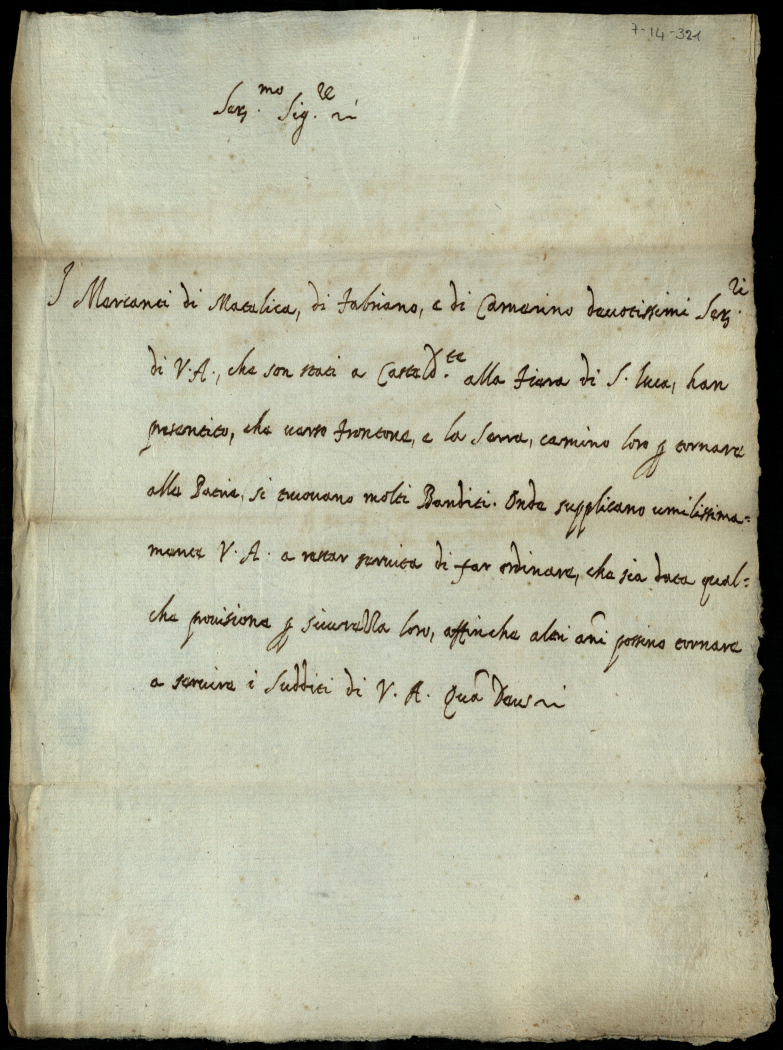 7-14-321
Ser.mo Sig.re
I Mercanti di Matelica, di Fabriano, e di Camerino deuotissimi Ser.ri
di V. A., che son stati a Casteld.te alla Fiera di S. Luca, han
presentito, che uerso Frontone, e la Serra, camino loro p tornare
alle Patrie, si truouano molti Banditi. Onde supplicano umilissima=
mente V. A. a restar seruita di far ordinare, che sia data qual=
che prouisione p sicurezza loro, affinche altri anni possino tornare
a seruire i Sudditi di V. A. Quā Deus